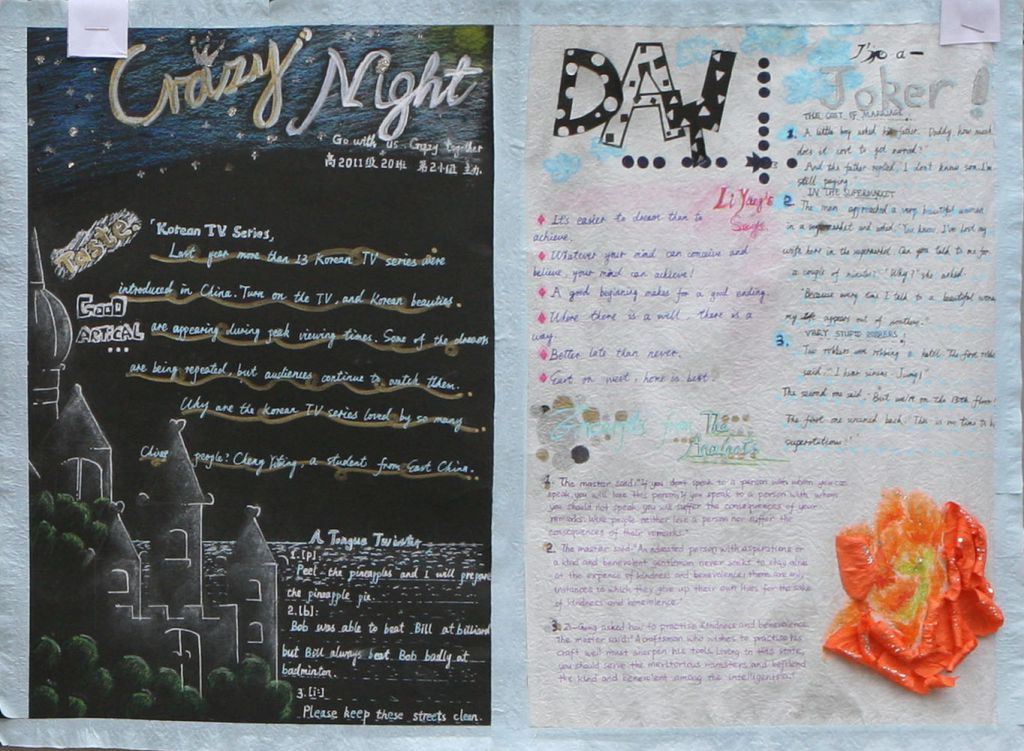 Crazy Night
Go with us Crazy together
高2011级20班 第2小组 主办
Taste
Good
ARTICAL
...
「Korean TV Series」
Last year more than 13 Korean TV series were
introduced in China. Turn on the TV, and Korean beauties.
are appearing during peak viewing times. Some of the dramas
are being repeated, but audiences continue to watch them.
Why are the korean TV series loved by so many
Chinese people? Cheng Yiting, a student from East China.
A Tongue Twister
1.[p]
Peel the pineapples and I will prepare
the pineapple pie.
2.[b]:
Bob was able to beat Bill at billiard
but Bill always beat Bob badly at
badminton.
3.[i:]
Please keep these streets clean.
DAY
Li Yang's
Says
It's easier to dream than to
achieve.
Whatever your mind can conceive and
believe, your mind can achieve!
A good beginning makes for a good ending.
Where there is a will, there is a
way.
Better late than never.
East or west, home is best.
Excerpts from The
Analects
1. The master said:"If you don't speak to a person whom you can
speak, you will lose this person; If you speak to a person with whom
you should not speak, you will suffer the consequences of your
remarks. Wise people neither lose a person nor suffer the
consequences of their remarks."
2. The master said:"An educated person with aspirations or
a kind and benevolent gentleman never seeks to stay alive
at the expense of kindness and benevolence; there are only
instances in which they give up their own lives for the sake
of kindness and benevolence."
3. Zi-Gung asked how to practise kindness and benevolence.
The master said:"A craftsman who wishes to practise his
craft well must sharpen his tools. Living in this state,
you should serve the meritorious ministers and befriend
the kind and benevolent among the intelligentsia."
I'm a
Joker!
THE COST OF MARRIAGE
1. A little boy asked his father. Daddy, how much
does it cost to get married?
And the father replied, I don't know son, I'm
still paying.
IN THE SUPERMARKET
2. The man approached a very beautiful woman
in a supermarket and asked, "You know, I've lost my
wife here in the supermarket. Can you talk to me for
a couple of minutes?" "Why?" she asked.
"Because every time I talk to a beautiful woman
my wife appears out of nowhere."
VERY STUPID ROBBERS
3. Two robbers are robbing a hotel. The first robber
said, "I hear sirens. Jump!"
The second one said, "But we're on the 13th floor!
The first one screamed back, "This is no time to be
superstitious!"